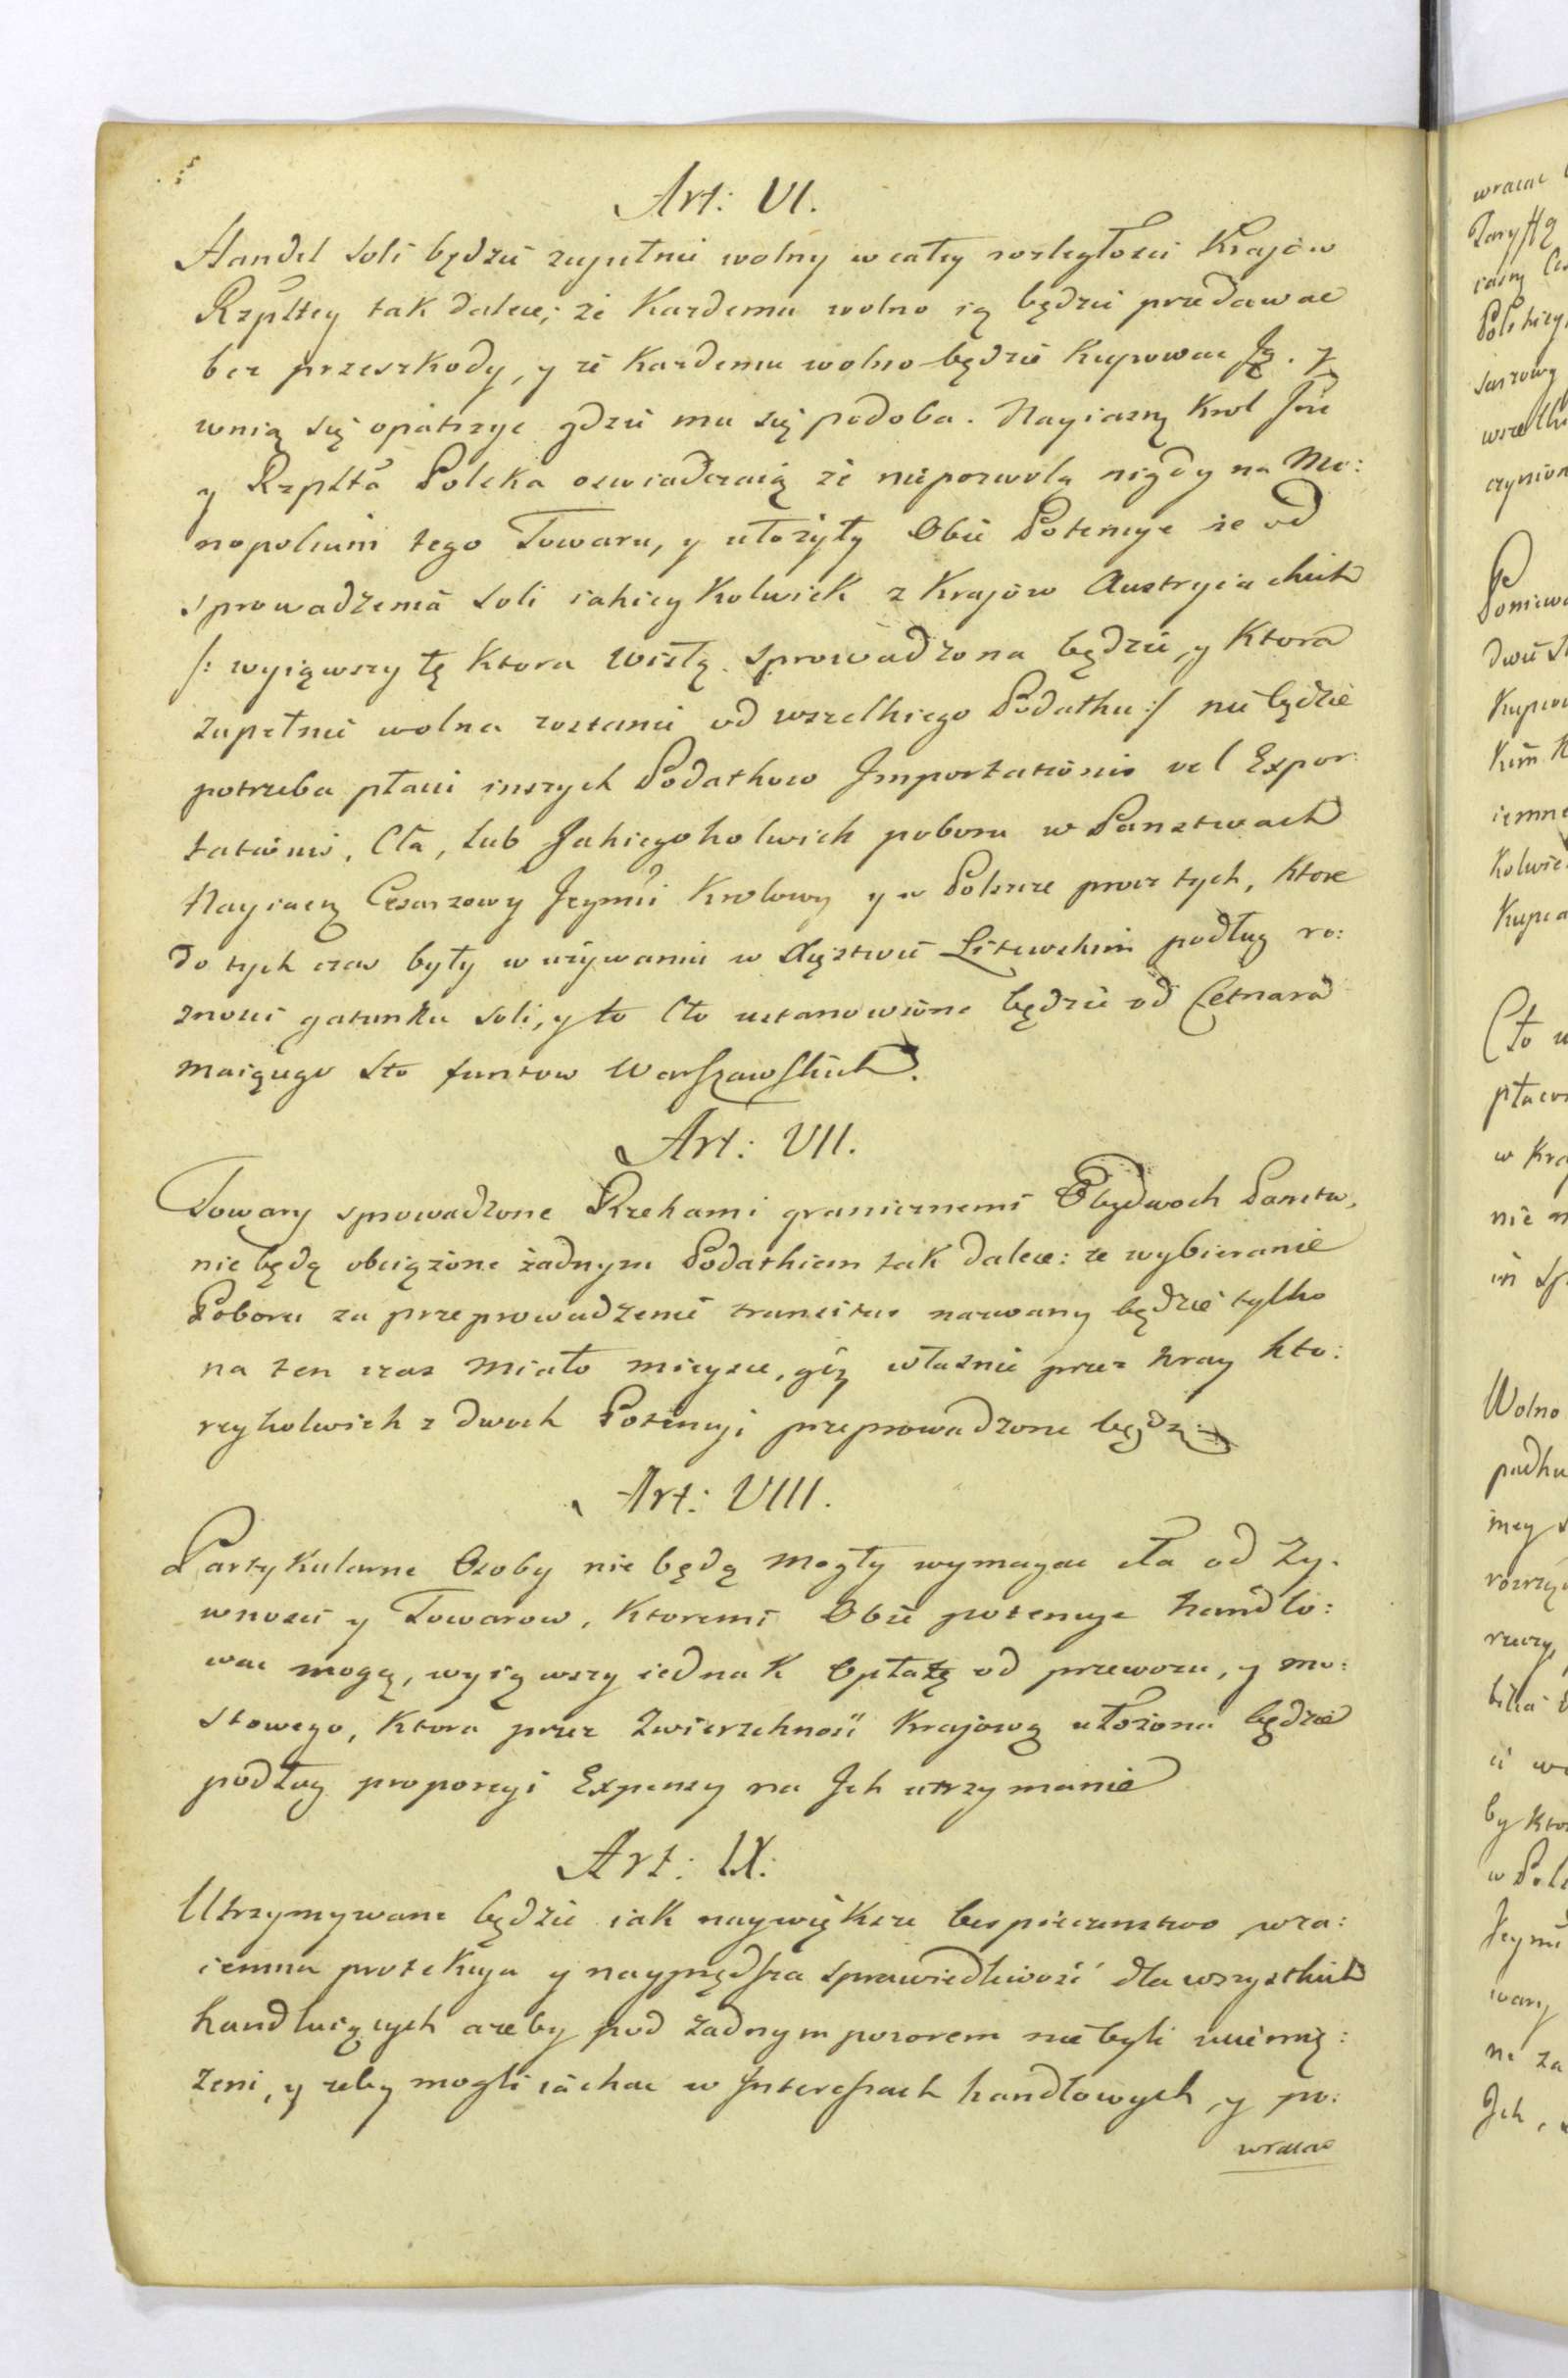 Art: VI.
Handel soli będzie zupełnie wolny w całey rozległości Krajów
Rzpltey tak dalece; że Każdemu wolno ią będzie przedawać
bez przeszkody, y że Każdemu wolno będzie Kupować Ją. y
wnią się opatrzyć gdzie mu się podoba. Nayiasny Krol Jmć
y Rzplta Polska oswiadczaią że niepozwolą nigdy na Mo:
nopolium tego Towaru, y ułożyły Obie Potencye że od
sprowadzenia Soli iakiey Kolwiek z Krajów Austryiackich
/: wyiąwszy tę Ktora Wisłą sprowadzona będzie, y Ktora
zupełnie wolna zostanie od wszelkiego Podatku :/ nie będzie
potrzeba płacić inszych Podatkow Importationis vel Expor:
tationis, Cła, lub Jakiegokolwiek poboru w Panstwach
Nayiasn Cesarzowy Jeymći Krolowy y w Polszcze procz tych, ktore
do tych czas były w używaniu w Xięstwie Litewskim podług ro:
żności gatunku Soli, y to Cło ustanowione będzie od Cetnara
maiącego sto funtow Warszawskich.
Art: VII.
Towary sprowadzone Rzekami granicznemi Obydwoch Panstw,
nie będą obciążone żadnym Podatkiem tak dalece: że wybieranie
Poboru za przeprowadzenie transitus nazwany będzie tylko
na ten czas miało mieysce, gdy własnie przez kray kto:
reykolwiek z dwoch Potencyi przeprowadzone będą.
Art: VIII.
Partykularne Osoby nie będą mogły wymagać cła od Zy:
wnosci y Towarow, Ktoremi Obie potencye handlo:
wać mogą, wyiąwszy iednak Opłatę od przewozu, y mo:
stowego, Ktora przez Zwierzchność Krajową ułożona będzie
podług proporcyi Expensy na Jch utrzymanie
Art: IX:
Utrzymywane będzie iak naywiększe bespieczenstwo wza:
iemna protekcya y nayprędsza sprawiedliwość dla wszystkich
handluiących ażeby pod żadnym pozorem nie byli uciemię:
żeni, y żeby mogli iachać w Interessach handlowych, y po:
wracać